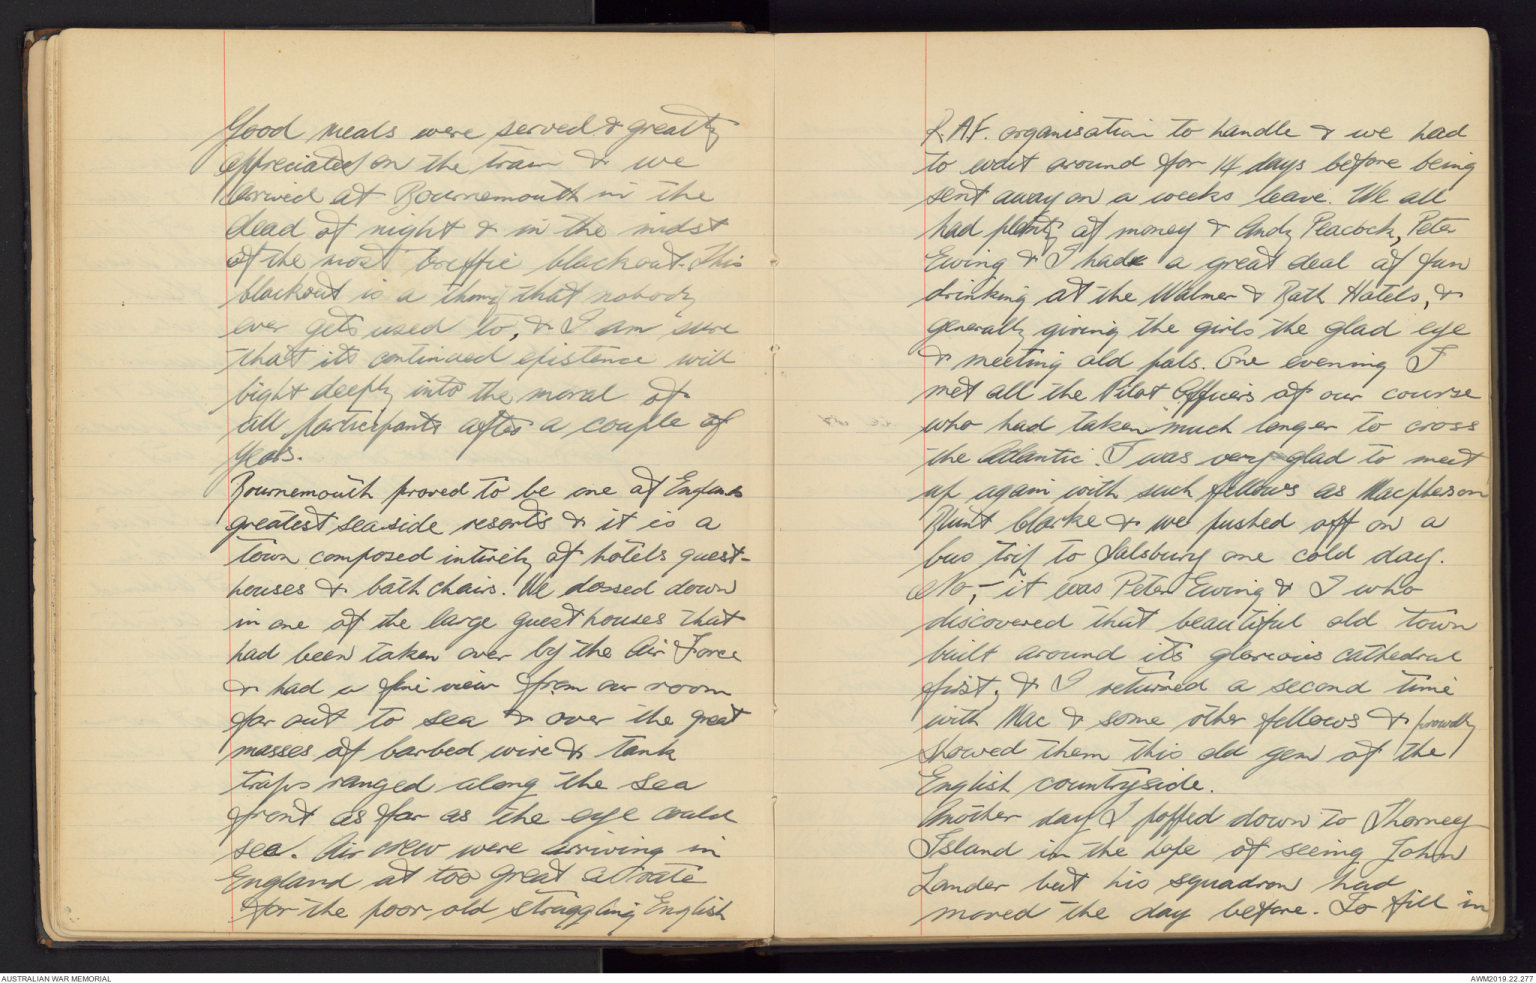 Good meals were served & greatly
appreciated on the train & we
arrived at Bournemouth in the
dead of night & in the midst
of the most terffic blackout. This
blackout is a thing that nobody
ever gets used to, & I am sure
that its continued existence will
bight deeply into the moral of
all participants after a couple of
years.
Bournemouth proved to be one of Englands
greatest seaside resorts & it is a
town composed intirely of hotels guest-
houses & bath chairs. We dossed down
in one of the large guest houses that
had been taken over by the Air Force
& had a fine view from our room
far out to sea & over the great
masses of barbed wire & tank
traps ranged along the sea
front as far as the eye could
see. Air crew were arriving in
England at too great a rate
for the poor old struggling English
R.A.F. organisation to handle & we had
to wait around for 14 days before being
sent away on a weeks leave. We all
had plenty of money & Andy Peacock, Peter
Ewing & I had a great deal of fun
drinking at the Walmer & Bath Hotels, &
generally giving the girls the glad eye
& meeting old pals. One evening I
met all the Pilot Officers of our course
who had taken much longer to cross
the Atlantic. I was very glad to meet
up again with such fellows as Macpherson
Blunt Clarke & we pushed off on a
bus trip to Salsbury one cold day.
No, - it was Peter Ewing & I who
discovered that beautiful old town
built around its glorious cathedral
first, & I returned a second time
with Mac & some other fellows & proudly
showed them this old gem of the
English countryside.
Another day I poffed down to Thorney
Island in the hope of seeing John
Lander but his squadron had
moved the day before. To fill in
AUSTRALIAN WAR MEMORIAL
AWM2019.22.277